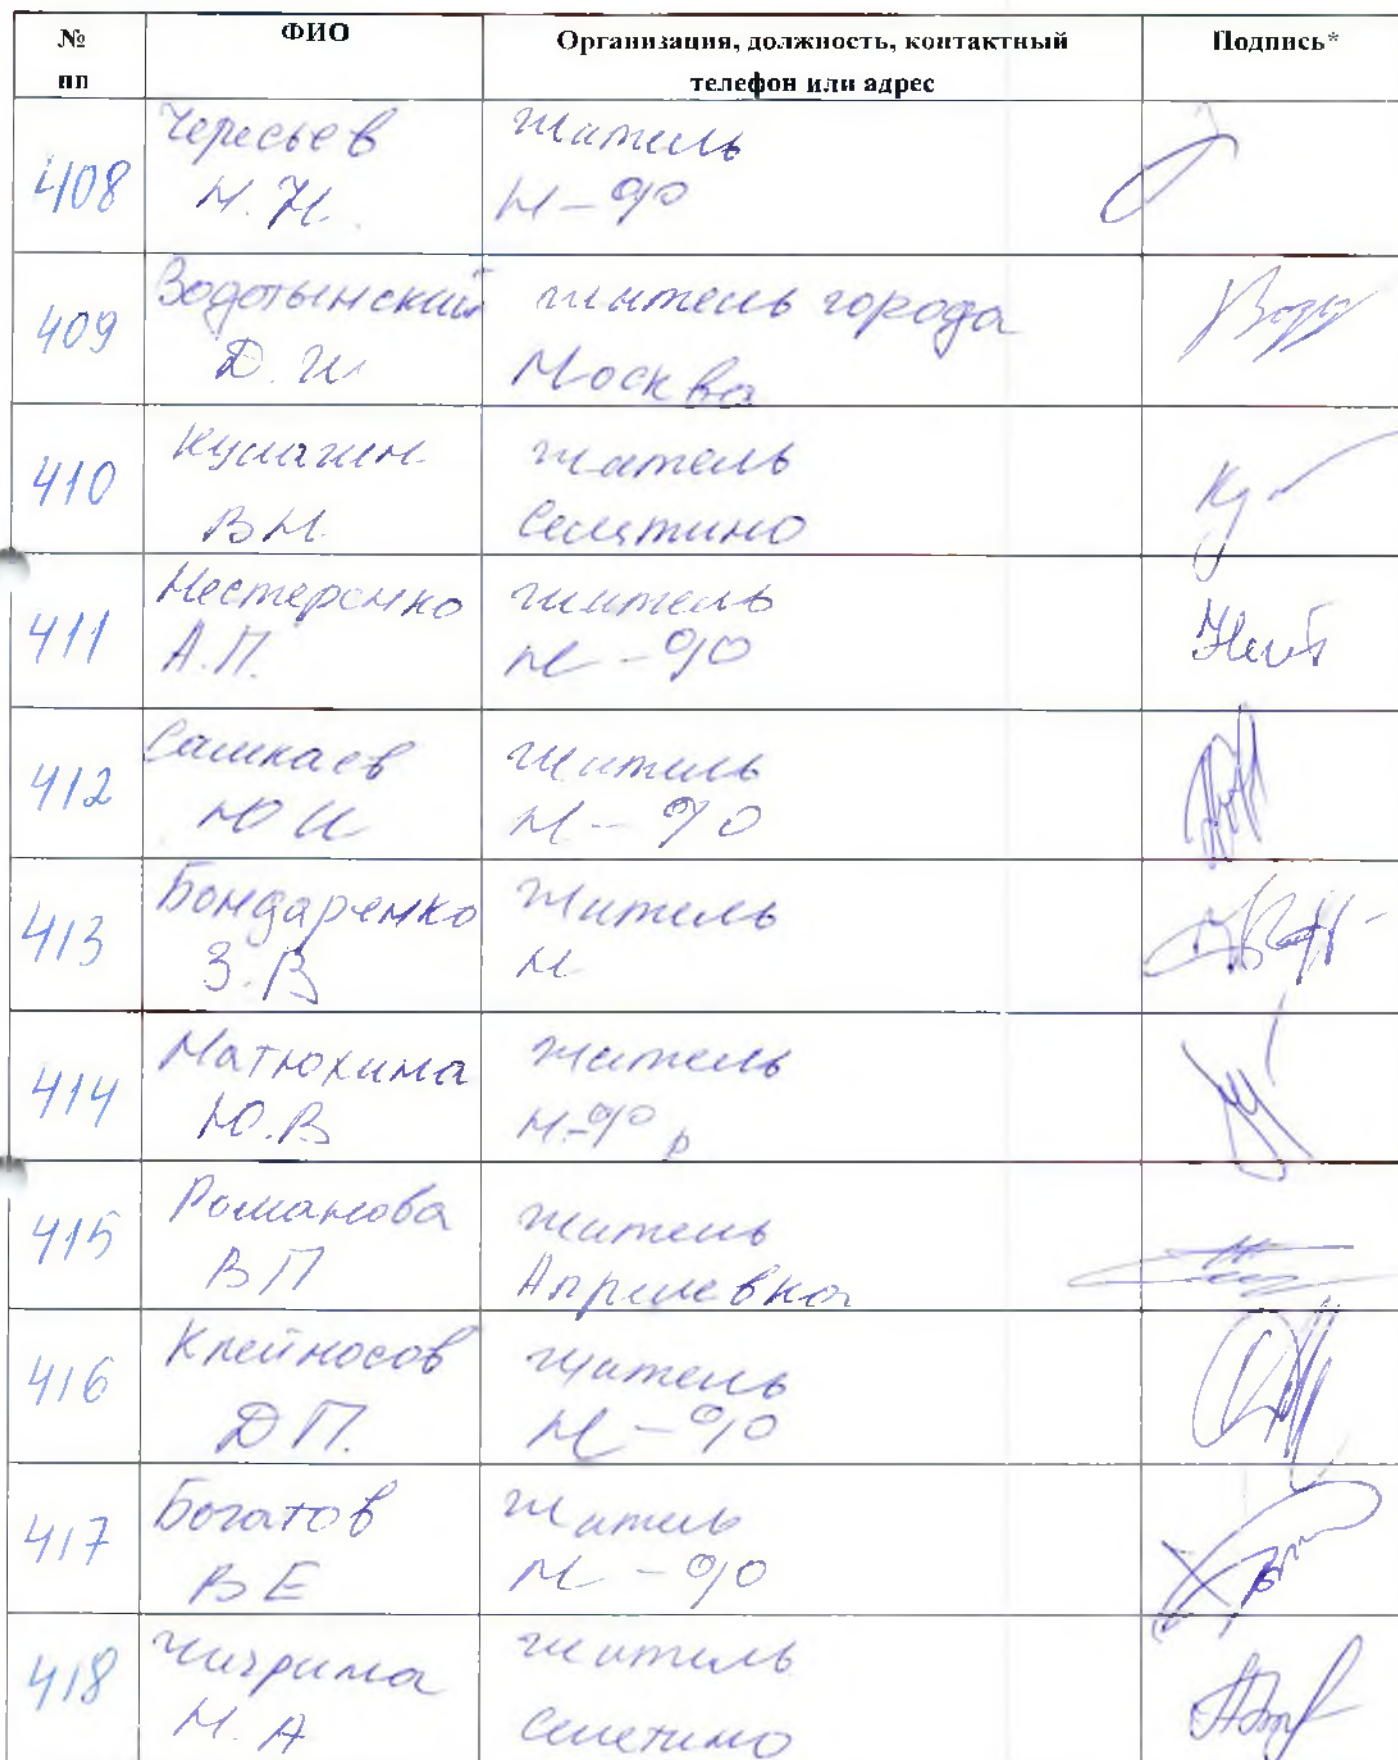 № пп
ФИО
Организация, должность, контактный
телефон или адрес
Подпись*
408
Н.Н.
житель
Н-Фо
409
Д.И
житель города
Москва
410
Кулагин
В Н.
житель
Селятино
411
Нестеренко
А.П.
житель
Н-Фо
412
Сашкаев
Ю И
житель
Н-Фо
413
Бондаренко
З.В
житель
Н
414
Матюхина
Ю.В
житель
Н-Фо р
415
Романова
В П
житель
Апрелевка
416
Клейносов
Д П.
житель
Н-Фо
417
Богатов
В Е
житель
Н-Фо
418
Чигрина
М.А
житель
Селятино